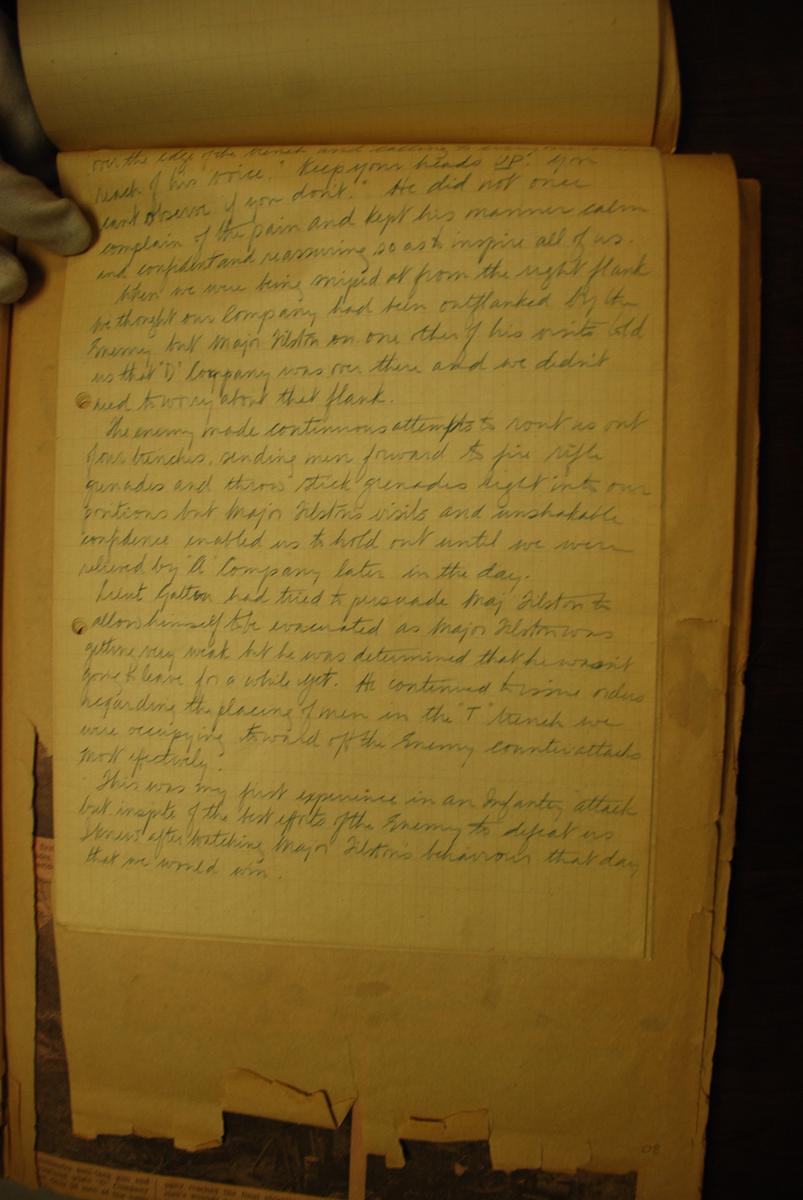 over the edge of the trench and calling to
reach of his voice. "Keep your heads UP! You
cant observe if you don't." He did not once
complain of the pain and kept his manner calm
and confident and reassuring so as to inspire all of us.
When we were being sniped at from the right flank
we thought our Company had been outflanked by the
Enemy but Major Tilston on one other of his visits told
us that "D" Company was over there and we didn't
need to worry about that flank.
The enemy made continuous attempts to rout us out
of our trenches, sending men forward to fire rifle
grenades and throw stick grenades right into our
positions but Major Tilston's visits and unshakable
confidence enabled us to hold out until we were
relieved by "A" Company later in the day.
Lieut Galton had tried to persuade Maj Tilston to
allow himself to be evacuated as Major Tilston was
getting very weak but he was determined that he wasn't
going to leave for a while yet. He continued to issue orders
regarding the placing of men in the "T" trench we
were occupying to ward off the Enemy counter attacks
most effectively.
This was my first experience in an Infantry attack
but inspite of the best efforts of the Enemy to defeat us
I knew after watching Major Tilston's behaviour that day
that we would win.